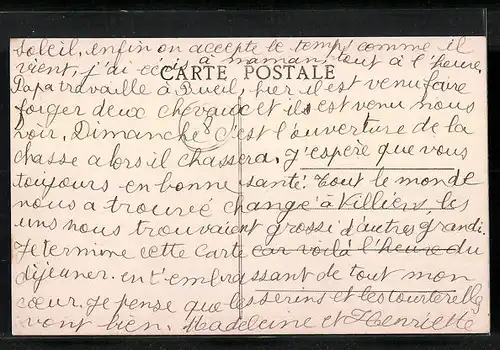 soleil, enfin on accepte le temps comme il
vient, j'ai écris à maman, tout à l'heure.
CARTE POSTALE
Papa travaille à Bueil, hier il est venu faire
forger deux chevaux et ils est venu nous
voir. Dimanche c'est l'ouverture de la
chasse alors il chassera. J'espère que vous
toujours en bonne santé. Tout le monde
nous a trouvée changé à Villiers, les
uns nous trouvaient grossi d'autres grandi.
Je termine cette carte car voilà l'heure du
déjeuner. en t'embrassant de tout mon
cœur. Je pense que les serins et les tourterelles
vont bien. Madeleine et Henriette